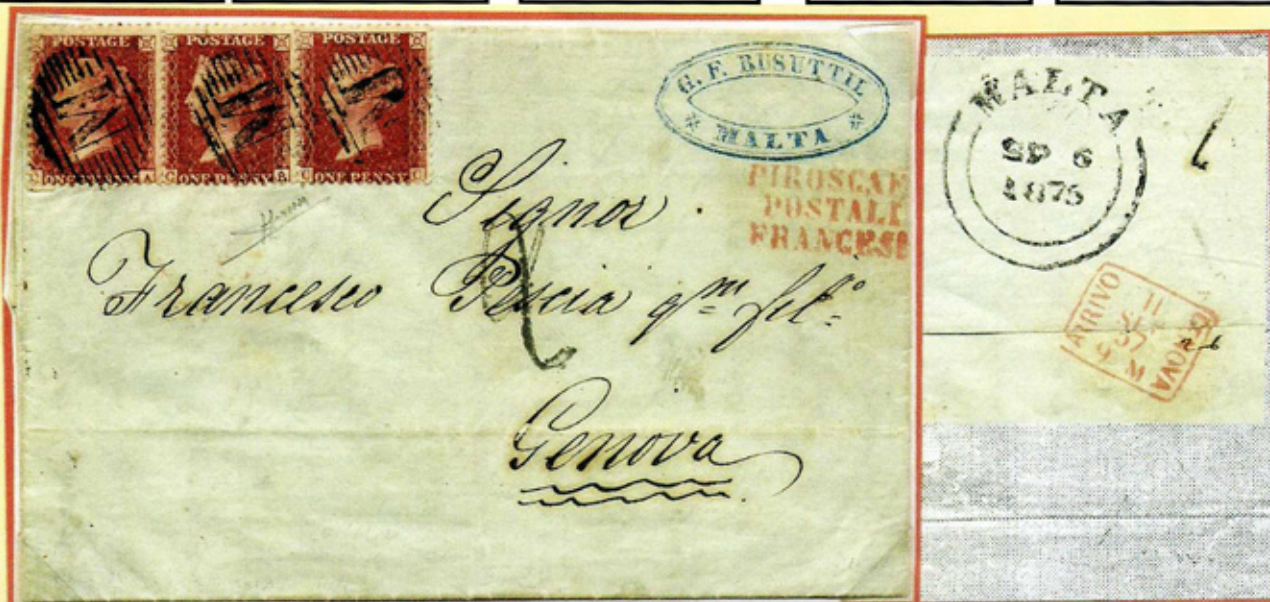 POSTAGE POSTAGE POSTAGE
ONE PENNY A
C ONE PENNY B
C ONE PENNY C
G. F. BUSUTTIL
MALTA
PIROSCAF
POSTALI
FRANCESI
Signor
Francesco Pescia qm fel:
Genova
MALTA
SP 6
ARRIVO
11
57
9 M
GENOVA